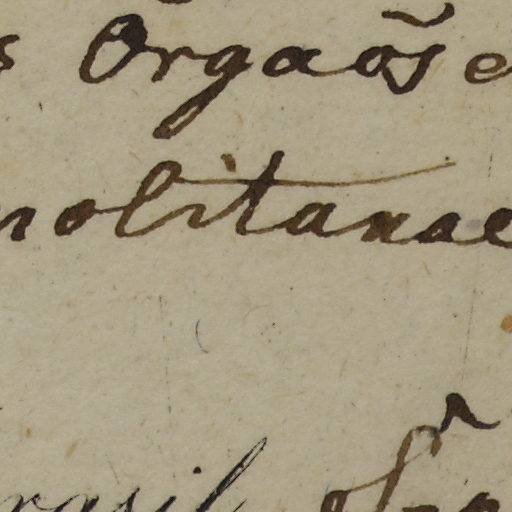 s Orgaõs e
politanae
rasil